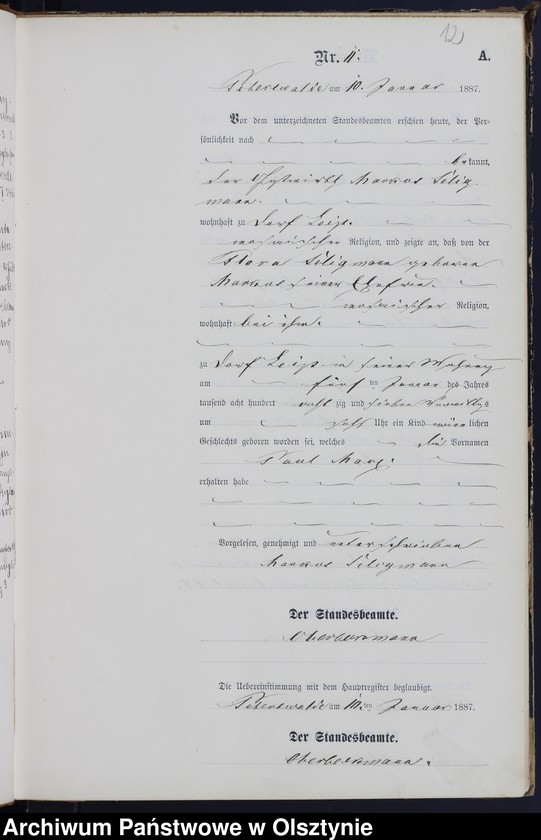 12
Nr. 11. A.
am 10. Januar 1887.
Vor dem unterzeichneten Standesbeamten erschien heute, der Per-
sönlichkeit nach
bekannt,
der Gastwirth Markus Selig-
mann
wohnhaft zu Dorf
mosaischer Religion, und zeigte an, daß von der
Flora Seligmann geborenen
Markus seiner Ehefrau
mosaischer Religion,
wohnhaft bei ihm
zu Dorf in seiner Wohnung
am fünften Januar des Jahres
tausend acht hundert achtzig und sieben Vormittags
um Uhr ein Kind männlichen
Geschlechts geboren worden sei, welches die Vornamen
Paul Max
erhalten habe
Vorgelesen, genehmigt und unterschrieben
Markus Seligmann
Der Standesbeamte.
Die Uebereinstimmung mit dem Hauptregister beglaubigt.
am 10ten Januar 1887.
Der Standesbeamte.
Archiwum Państwowe w Olsztynie